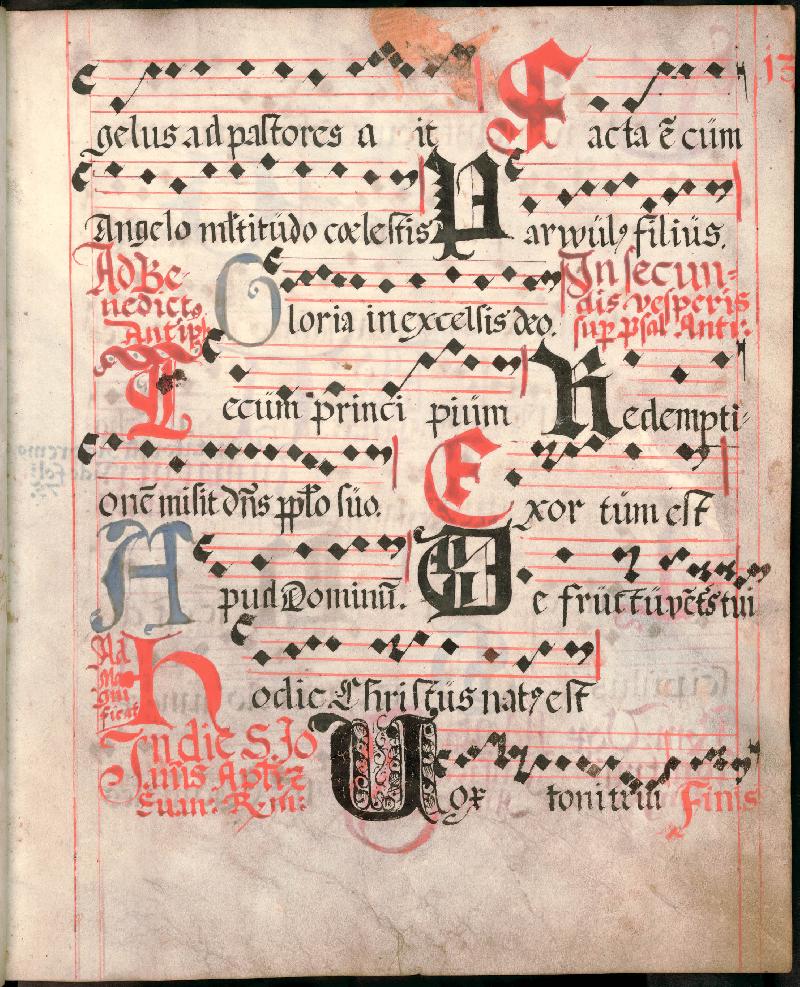 13
gelus ad pastores a it Facta ē cūm
Angelo mltitudo cœlestis Parvulꝰ filius.
Ad Be-
nedictꝰ
Antiph Gloria in excelsis deo. In secun-
dis vesperis
sup psal Anti:
Tecum princi pium Redempti-
onē misit dn̄s pplo suo. Exor tum est
Apud Dominū. De fructu vēts tui
Ad
Mag
nifi
ficat Hodie Christus natꝰ est
In die S. Io
annis Aptiz
Euan: R. iii: Vox tonitrui Finis